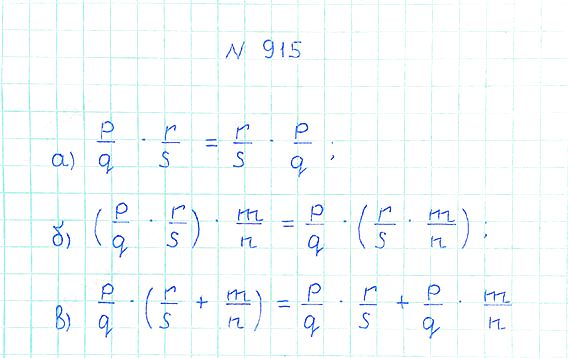 N 915
а) p/q · r/s = r/s · p/q ;
б) (p/q · r/s) · m/n = p/q · (r/s · m/n) ;
в) p/q · (r/s + m/n) = p/q · r/s + p/q · m/n